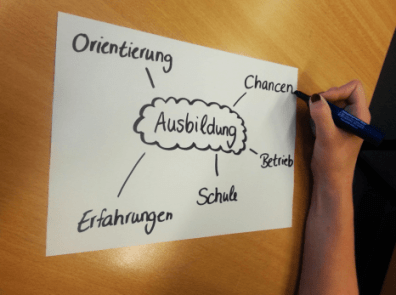 Orientierung
Chancen
Ausbildung
Betrieb
Schule
Erfahrungen